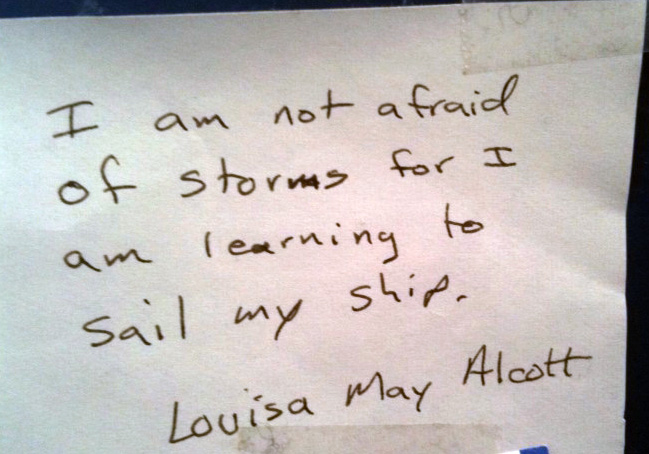 I am not afraid
of storms for I
am learning to
sail my ship.
Louisa May Alcott